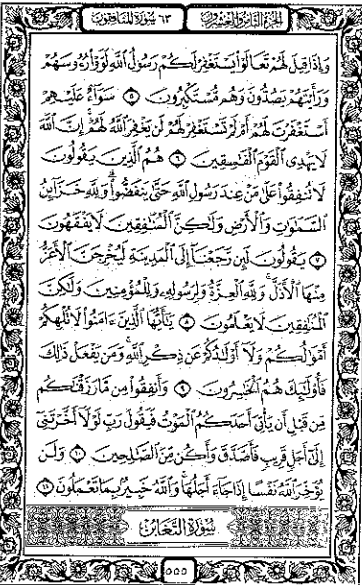 الجزء الثامن والعشرون
٦٣ سورة المنافقون
وَإِذَا قِيلَ لَهُمْ تَعَالَوْا۟ يَسْتَغْفِرْ لَكُمْ رَسُولُ ٱللَّهِ لَوَّوْا۟ رُءُوسَهُمْ
وَرَأَيْتَهُمْ يَصُدُّونَ وَهُم مُّسْتَكْبِرُونَ ٥ سَوَآءٌ عَلَيْهِمْ
أَسْتَغْفَرْتَ لَهُمْ أَمْ لَمْ تَسْتَغْفِرْ لَهُمْ لَن يَغْفِرَ ٱللَّهُ لَهُمْ إِنَّ ٱللَّهَ
لَا يَهْدِى ٱلْقَوْمَ ٱلْفَـٰسِقِينَ ٦ هُمُ ٱلَّذِينَ يَقُولُونَ
لَا تُنفِقُوا۟ عَلَىٰ مَنْ عِندَ رَسُولِ ٱللَّهِ حَتَّىٰ يَنفَضُّوا۟ وَلِلَّهِ خَزَآئِنُ
ٱلسَّمَـٰوَٰتِ وَٱلْأَرْضِ وَلَـٰكِنَّ ٱلْمُنَـٰفِقِينَ لَا يَفْقَهُونَ
٧ يَقُولُونَ لَئِن رَّجَعْنَآ إِلَى ٱلْمَدِينَةِ لَيُخْرِجَنَّ ٱلْأَعَزُّ
مِنْهَا ٱلْأَذَلَّ وَلِلَّهِ ٱلْعِزَّةُ وَلِرَسُولِهِۦ وَلِلْمُؤْمِنِينَ وَلَـٰكِنَّ
ٱلْمُنَـٰفِقِينَ لَا يَعْلَمُونَ ٨ يَـٰٓأَيُّهَا ٱلَّذِينَ ءَامَنُوا۟ لَا تُلْهِكُمْ
أَمْوَٰلُكُمْ وَلَآ أَوْلَـٰدُكُمْ عَن ذِكْرِ ٱللَّهِ وَمَن يَفْعَلْ ذَٰلِكَ
فَأُو۟لَـٰٓئِكَ هُمُ ٱلْخَـٰسِرُونَ ٩ وَأَنفِقُوا۟ مِن مَّا رَزَقْنَـٰكُم
مِّن قَبْلِ أَن يَأْتِىَ أَحَدَكُمُ ٱلْمَوْتُ فَيَقُولَ رَبِّ لَوْلَآ أَخَّرْتَنِىٓ
إِلَىٰٓ أَجَلٍ قَرِيبٍ فَأَصَّدَّقَ وَأَكُن مِّنَ ٱلصَّـٰلِحِينَ ١٠ وَلَن
يُؤَخِّرَ ٱللَّهُ نَفْسًا إِذَا جَآءَ أَجَلُهَا وَٱللَّهُ خَبِيرٌۢ بِمَا تَعْمَلُونَ ١١
سورة التغابن
٥٥٥